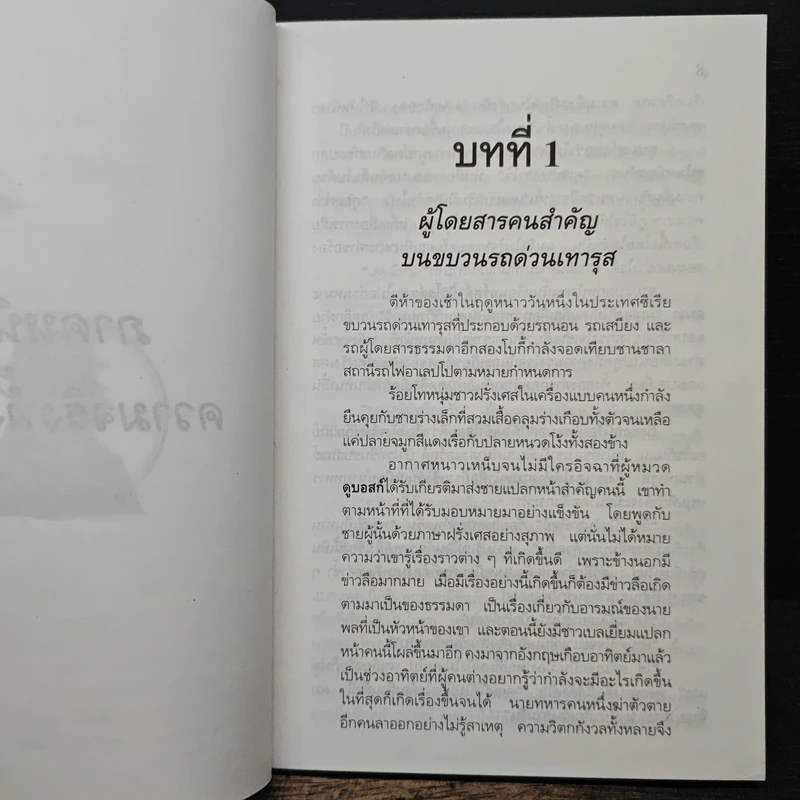 บทที่ 1
ผู้โดยสารคนสำคัญ
บนขบวนรถด่วนเทารุส
ตีห้าของเช้าในฤดูหนาววันหนึ่งในประเทศซีเรีย
ขบวนรถด่วนเทารุสที่ประกอบด้วยรถนอน รถเสบียง และ
รถผู้โดยสารธรรมดาอีกสองโบกี้กำลังจอดเทียบชานชาลา
สถานีรถไฟอาเลปโปตามหมายกำหนดการ
ร้อยโทหนุ่มชาวฝรั่งเศสในเครื่องแบบคนหนึ่งกำลัง
ยืนคุยกับชายร่างเล็กที่สวมเสื้อคลุมร่างเกือบทั้งตัวจนเหลือ
แค่ปลายจมูกสีแดงเรื่อกับปลายหนวดโง้งทั้งสองข้าง
อากาศหนาวเหน็บจนไม่มีใครอิจฉาที่ผู้หมวด
ดูบอสก์ได้รับเกียรติมาส่งชายแปลกหน้าสำคัญคนนี้ เขาทำ
ตามหน้าที่ที่ได้รับมอบหมายมาอย่างแข็งขัน โดยพูดกับ
ชายผู้นั้นด้วยภาษาฝรั่งเศสอย่างสุภาพ แต่นั่นไม่ได้หมาย
ความว่าเขารู้เรื่องราวต่าง ๆ ที่เกิดขึ้นดี เพราะข้างนอกมี
ข่าวลือมากมาย เมื่อมีเรื่องอย่างนี้เกิดขึ้นก็ต้องมีข่าวลือเกิด
ตามมาเป็นของธรรมดา เป็นเรื่องเกี่ยวกับอารมณ์ของนาย
พลที่เป็นหัวหน้าของเขา และตอนนี้ยังมีชาวเบลเยี่ยมแปลก
หน้าคนนี้โผล่ขึ้นมาอีก คงมาจากอังกฤษเกือบอาทิตย์มาแล้ว
เป็นช่วงอาทิตย์ที่ผู้คนต่างอยากรู้ว่ากำลังจะมีอะไรเกิดขึ้น
ในที่สุดก็เกิดเรื่องขึ้นจนได้ นายทหารคนหนึ่งฆ่าตัวตาย
อีกคนลาออกอย่างไม่รู้สาเหตุ ความวิตกกังวลทั้งหลายจึง